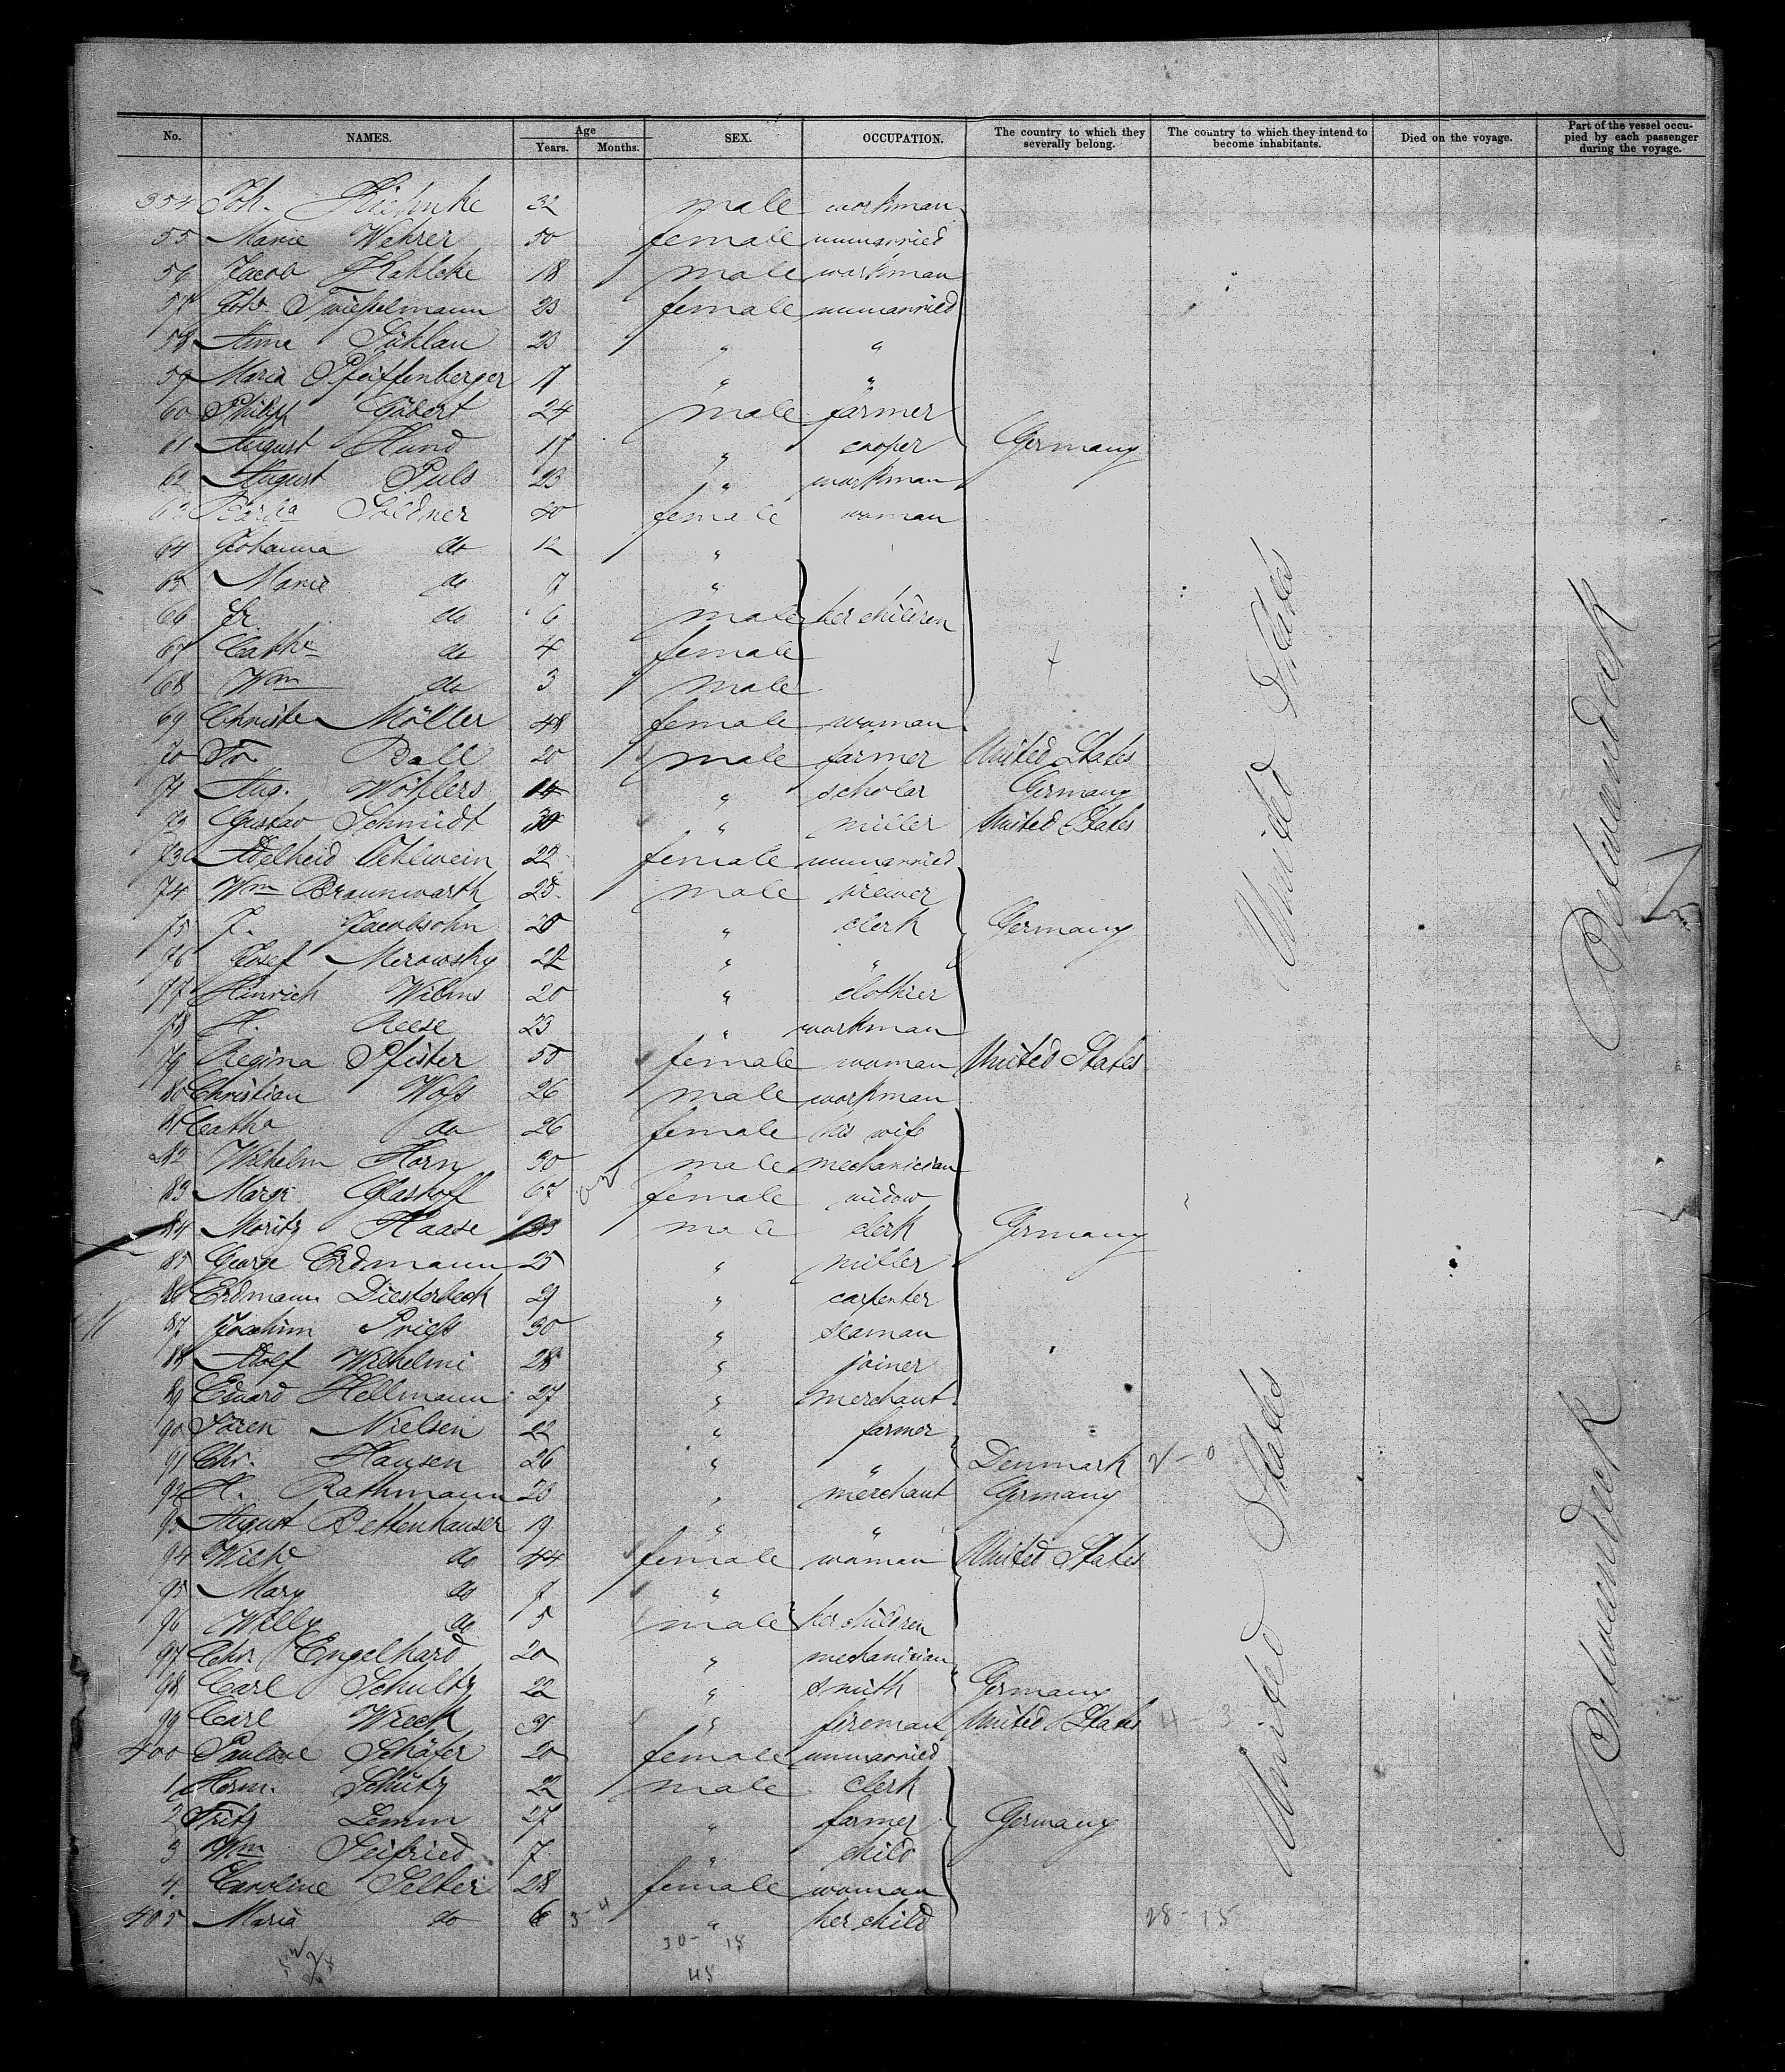 No. NAMES. Age Years. Months. SEX. OCCUPATION. The country to which they severally belong. The country to which they intend to become inhabitants. Died on the voyage. Part of the vessel occupied by each passenger during the voyage.
354 Joh. 32 male workman
55 Marie Wehrer 50 female unmarried
56 Jacob Kahlcke 18 male workman
57 23 female unmarried
58 Anna 23 " "
59 Maria Pfeiffenberger 17 " "
60 Philipp Gödert 24 male farmer
61 August Hund 17 " cooper Germany
62 August Puls 23 " workman
63 Söldner 40 female woman
64 Johanna do 12 "
65 Marie do 7 "
66 Fr. do 6 male her children
67 Cathe do 4 female
68 Wm do 3 male
69 Christe Möller 48 female woman
70 Fr. Ball 20 male farmer United States
71 Aug. Wöhlers 14 " scholar Germany
72 Gustav Schmidt " miller United States
73 Adelheid Oehlwein 22 female unmarried
74 Wm Braunwarth 25 male brewer
75 J. Jacobsohn 20 " clerk Germany
76 Josef Merowsky 22 " "
77 Hinrich Wilms 20 " clothier
78 H. Reese 23 " workman
79 Regina Pfister 55 female woman United States
80 Christian Woss 26 male workman
81 Catha do 26 female his wife
82 Wilhelm Horn 30 male mechanician
83 Margr Glashoff 67 female widow
84 Moritz Haase male clerk Germany
85 George Erdmann 25 " miller
86 Erdmann Diesterbeck 29 " carpenter
87 Joachim Priess 30 " seaman
88 Adolf Wilhelmi 28 " joiner
89 Eduard Hellmann 27 " merchant
90 Sören Nielsen 22 " farmer
91 Chr. Hansen 26 " " Denmark 2-0
92 H. Rathmann 23 " merchant Germany
93 August Bettenhauser 19 " "
94 do 44 female woman United States
95 Mary do 7 "
96 Willy do 5 male her children
97 Chr. Engelhard 20 " mechanician
98 Carl Schultz 22 " smith Germany
99 Carl Wreck 31 " fireman United States 4-3
400 Pauline Schäfer 20 female unmarried
1 Herm. Schütz 22 male clerk
2 Fritz Lemm 27 " farmer Germany
3 Wm Seifried 7 " child
4 Caroline Selter 28 female woman
405 Maria do 6 3-4 " her child 28-15
30- 15
45
United States
United States
Betweendeck
Betweendeck